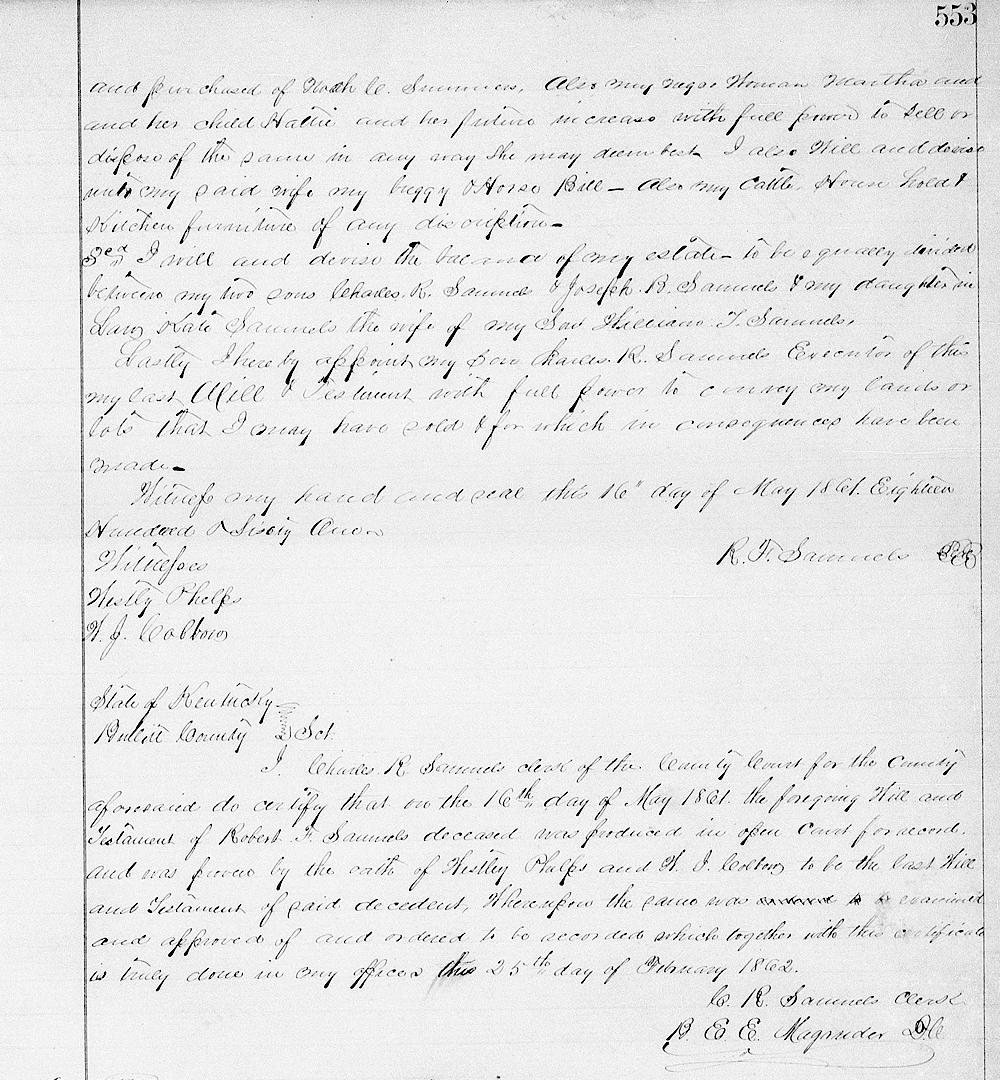 553
and purchased of Noah C. Summers, Also my negro Woman Martha and
and her child Hattie and her future increase with full power to sell or
dispose of the same in any way she may deem best I also Will and devise
unto my said wife my buggy & Horse Bill – Also my Cattle, House hold &
Kitchen furniture of any discription –
3rd I will and devise the balance of my estate – to be equally divided
between my two sons Charles. R. Samuels & Joseph. B. Samuels & my daughter in
Law, Kate Samuels the wife of my Son William. T. Samuels,
Lastly I hereby appoint my son Charles. R. Samuels Executor of this
my last Will & Testiment with full power to convey my lands or
lots that I may have sold & for which in consequences have been
made –
Witness my hand and seal this 16" day of May 1861. Eighteen
Hundred & Sixty One
R. F. Samuels
Witnesses
Westly Phelps
W. J.
State of Kentucky
Bullitt County Sct.
I. Charles. R Samuels clerk of the County Court for the County
aforesaid do certify that on the 16th day of May 1861. the foregoing Will and
Testament of Robert. F. Samuels deceased was produced in open Court for record.
and was proven by the oath of Westley Phelps and W. J. to be the last Will
and Testament of said decedent, Whereupon the same was examined
and approved of and ordered to be recorded which together with this certificate
is truly done in my office this 25th day of February 1862.
C. R. Samuels Clerk
B. E. E. Magruder D.C.